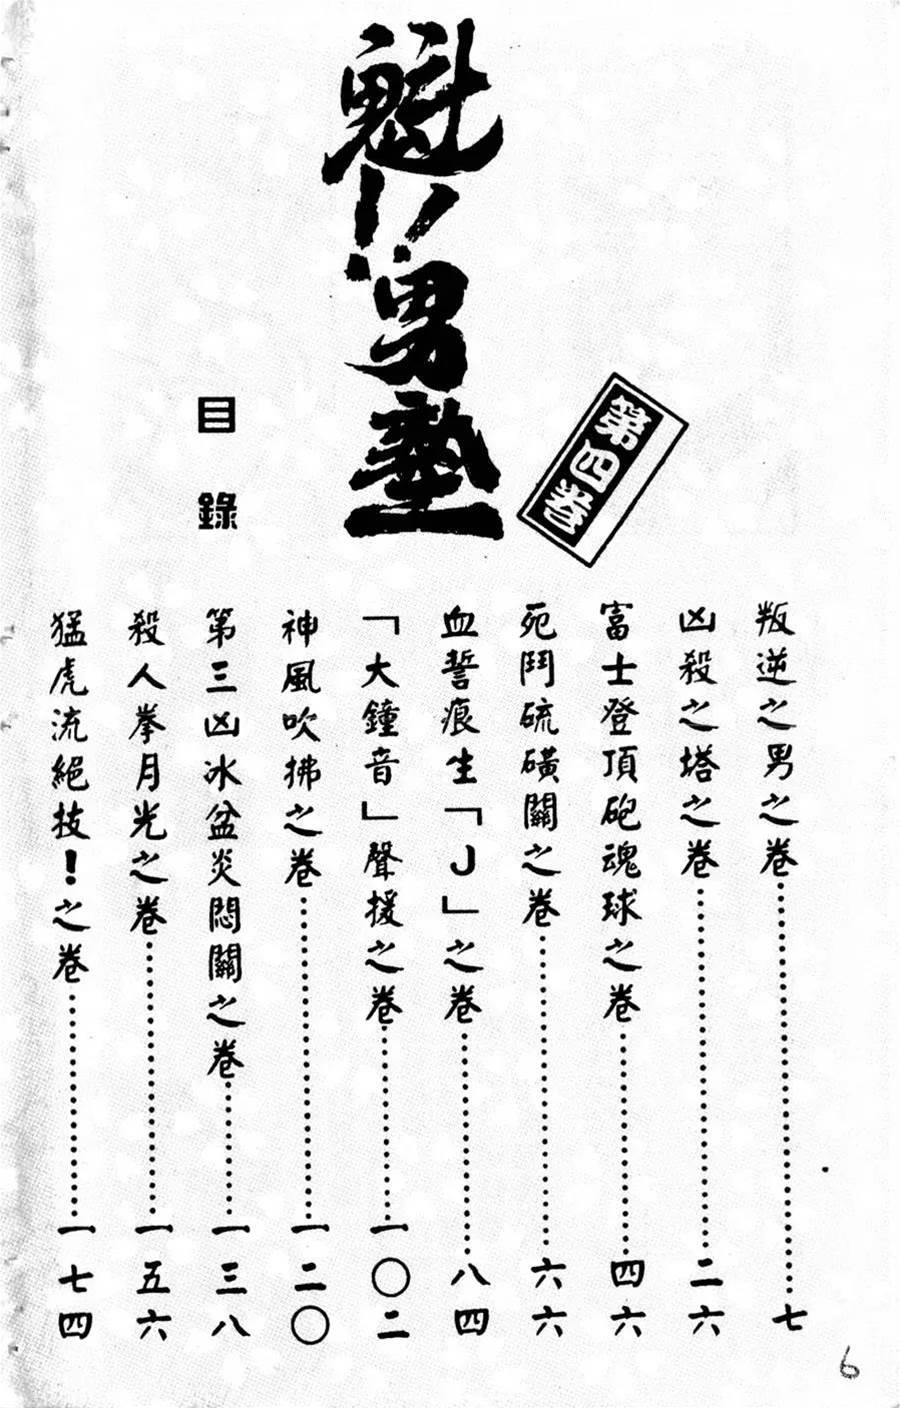 魁!!男塾
第四卷
目錄
叛逆之男之卷……七
凶殺之塔之卷……二六
富士登頂砲魂球之卷……四六
死鬥硫磺關之卷……六六
血誓痕生「J」之卷……八四
「大鐘音」聲援之卷……一〇二
神風吹拂之卷……一二〇
第三凶冰盆炎悶關之卷……一三八
殺人拳月光之卷……一五六
猛虎流絕技!之卷……一七四
6